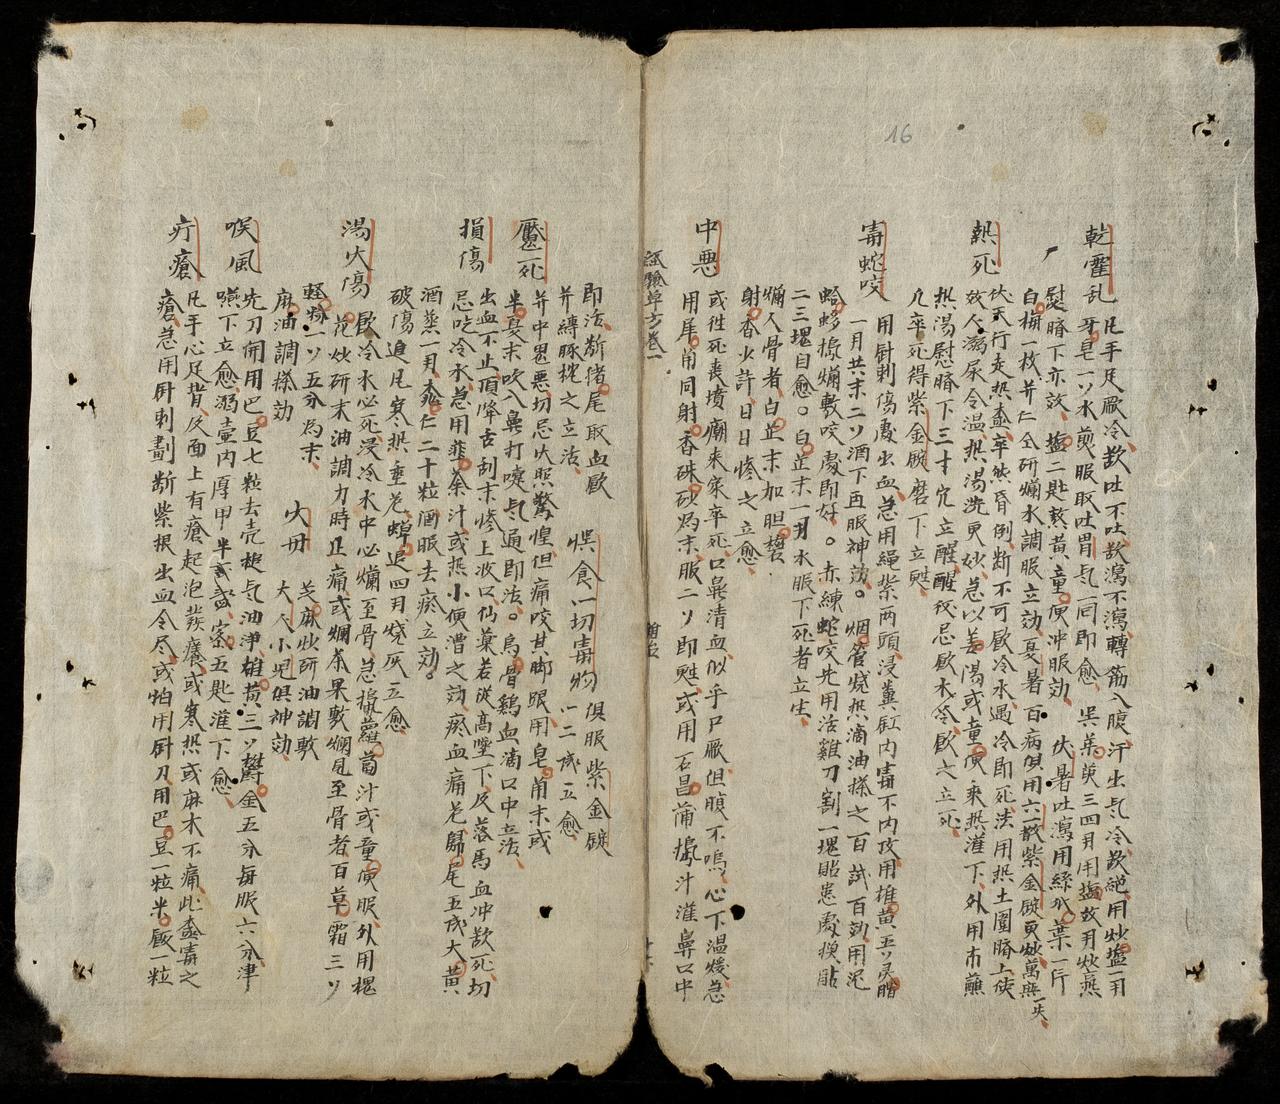 16
乾霍乱 凡手足厥冷欲吐不吐欲瀉不瀉轉筋入腹汗出气冷欲絕用炒塩一月
牙皂一ソ水煎服取吐胃气一回即愈 吳茱萸三四月用塩数月炒燕
熨臍下亦效 塩二匙熬黄童便沖服効 伏暑吐瀉用絲瓜葉一斤
白梅一枚并仁仝研爛水調服立効夏暑百病俱用六一散紫金錠更妙萬無一失
熱死 伏天行走热盡卒然昏倒断不可飲冷水遇冷即死法用热土圍臍上使
数人溺尿令温热湯洗更妙急以姜湯或童便乘热灌下外用布蘸
热湯慰臍下三寸穴立醒醒後忌飲水冷飲之立死
凡卒死得紫金錠磨下立甦
毒蛇咬 用針刺傷處出血急用繩紮两頭浸糞缸内毒不内攻用雄黄五ソ灵脂
一月共末二ソ酒下再服神効。烟管燒热滴油搽之百試百効用泥
蛤蟆搗爛敷咬處即好。赤練蛇咬先用活雞刀割一塊貼患處換貼
二三塊自愈。白芷末一月水服下死者立生
爛人骨者白芷末加胆礬
射香少許日日掺之立愈
中悪 或往死喪墳廟来家卒死口鼻清血似乎尸厥但腹不鳴心下温煖急
用犀角同射香硃砂為末服二ソ即甦或用石昌蒲搗汁灌鼻口中
試驗单方卷一
即活断猪尾取血飲
并縛豚枕之立活 悞食一切毒物 俱服紫金錠
一二次立愈
魘死 并中悪悪切忌火照驚惶但痛咬其脚跟用皂角末或
半夏末吹入鼻打嚏气通即活。烏骨鷄血滴口中立活
損傷 出血不止頂降舌刮末掺上收口仙藥若從高墜下及落馬血冲欲死切
忌吃冷水急用韮菜汁或热小便漕之効瘀血痛尼歸尾五戋大黄
酒蒸一月桃仁二十粒酒服去瘀立効。
破傷追尾寒热垂危蟬退四月燒灰立愈
湯火傷 飲冷水必死浸冷水中必爛至骨急搗蘿蔔汁或童便服外用槐
花炒研末油調力時止痛或爛茶果敷爛見至骨者百草霜三ソ
軽粉一ソ五分為末 火丹 芝麻炒研油調敷
麻油調搽効 大人小児俱神効
喉風 先刀開用巴豆七粒去壳搥气油淨雄黄三ソ欝金五分每服六分津
嚥下立愈溺壺内厚甲半盏蜜五匙灌下愈
疔瘡 凡手心足背及面上有瘡起泡發癢或寒热或麻木不痛此盡毒之
瘡急用針刺劃断紫根出血令尽或怕用針刀用巴豆一粒米廠一粒